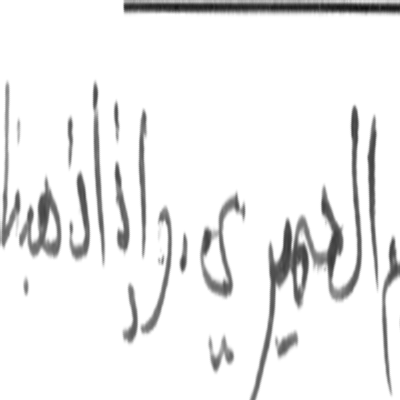 الحميري . وإذا ذهبنا